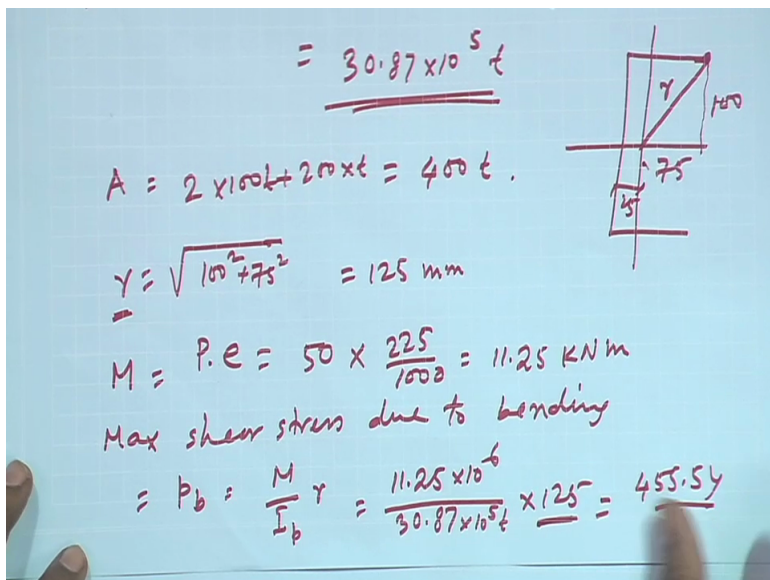 = 30.87 x 10⁵ t
A = 2 x 100t + 200 x t = 400 t .
r = √100² + 75² = 125 mm
M = P.e = 50 x 225/1000 = 11.25 KNm
Max shear stress due to bending
= Pb = M/Ib r = 11.25 x 10⁻⁶/30.87 x 10⁵t x 125 = 455.54
r
100
75